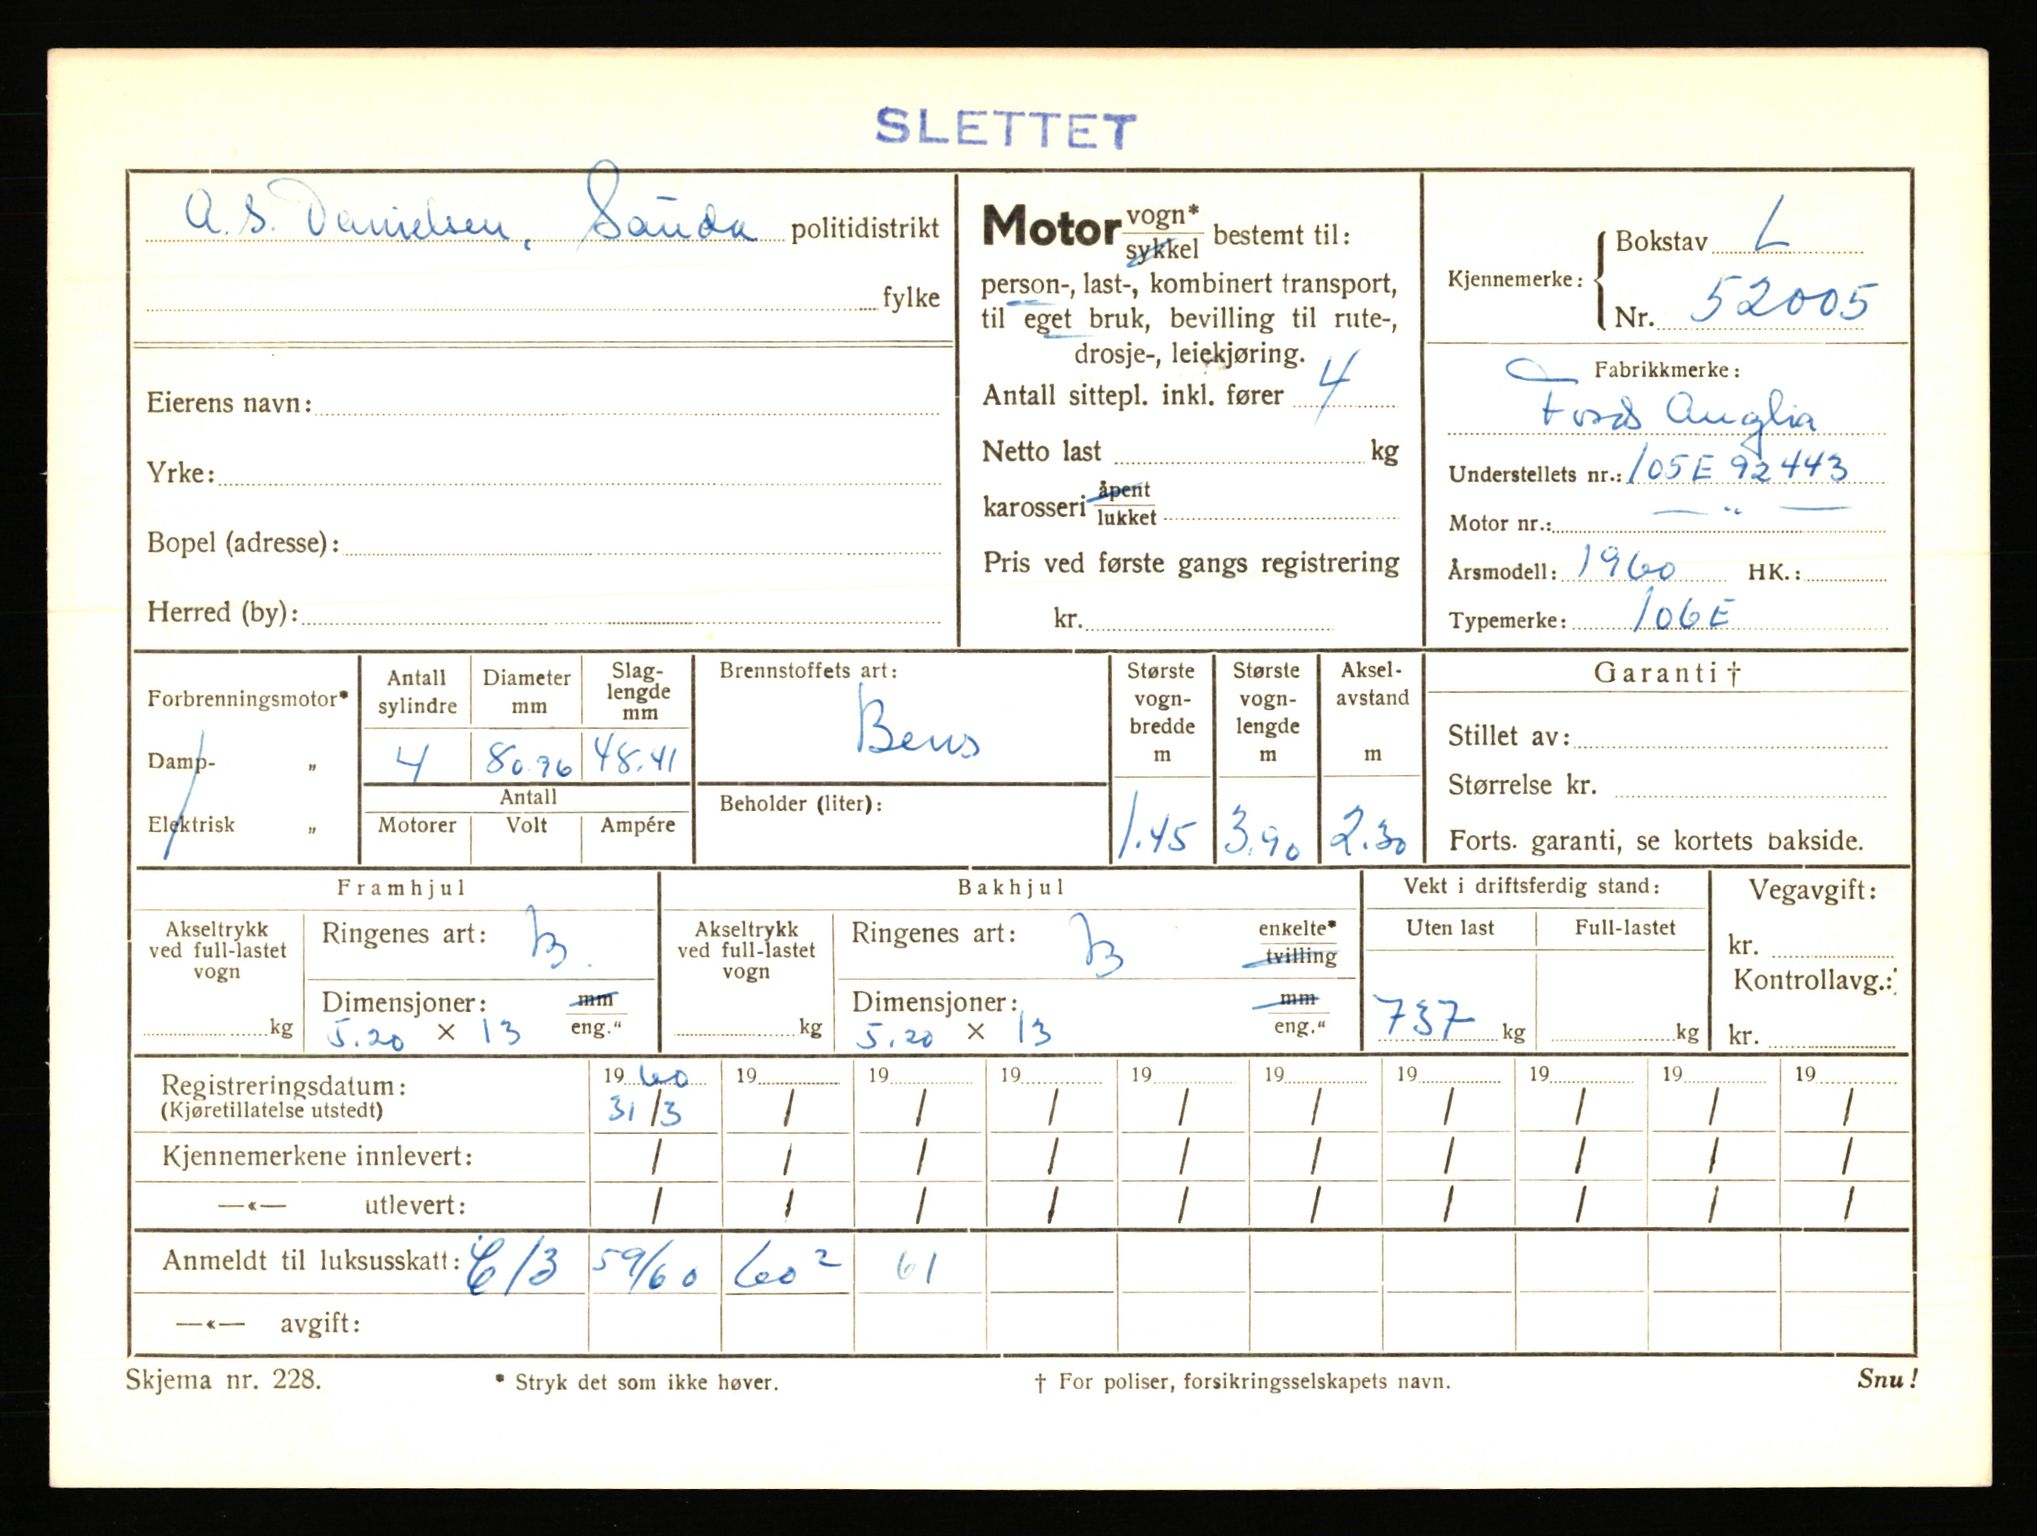 SLETTET
A. S. Danielsen, Sauda politidistrikt
fylke
Eierens navn:
Yrke:
Bopel (adresse):
Herred (by):
Motor vogn* sykkel bestemt til:
person-, last-, kombinert transport,
til eget bruk, bevilling til rute-,
drosje-, leiekjøring.
Antall sittepl. inkl. fører 4
Netto last kg
karosseri åpent lukket
Pris ved første gangs registrering
kr.
Kjennemerke: Bokstav L
Nr. 52005
Fabrikkmerke:
Ford Anglia
Understellets nr.: 105E 92443
Motor nr.: — " —
Årsmodell: 1960 HK.:
Typemerke: 106E
Forbrenningsmotor*
Damp- „
Elektrisk „
Antall sylindre Diameter mm Slag-lengde mm
4 80.96 48.41
Antall
Motorer Volt Ampére
Brennstoffets art:
Bens
Beholder (liter):
Største vogn-bredde m
1.45
Største vogn-lengde m
3.90
Aksel-avstand m
2.30
Garanti †
Stillet av:
Størrelse kr.
Forts. garanti, se kortets bakside.
Framhjul
Akseltrykk ved full-lastet vogn
kg
Ringenes art: B.
Dimensjoner: mm eng."
5.20 × 13
Bakhjul
Akseltrykk ved full-lastet vogn
kg
Ringenes art: B enkelte* tvilling
Dimensjoner: mm eng."
5.20 × 13
Vekt i driftsferdig stand:
Uten last Full-lastet
737 kg kg
Vegavgift:
kr.
Kontrollavg.:
kr.
Registreringsdatum: 19 60 19 19 19 19 19 19 19 19 19
(Kjøretillatelse utstedt) 31/3 / / / / / / / / /
Kjennemerkene innlevert: / / / / / / / / / /
—«— utlevert: / / / / / / / / / /
Anmeldt til luksusskatt: C/3 59/60 60² 61
—«— avgift:
Skjema nr. 228. * Stryk det som ikke høver. † For poliser, forsikringsselskapets navn. Snu!